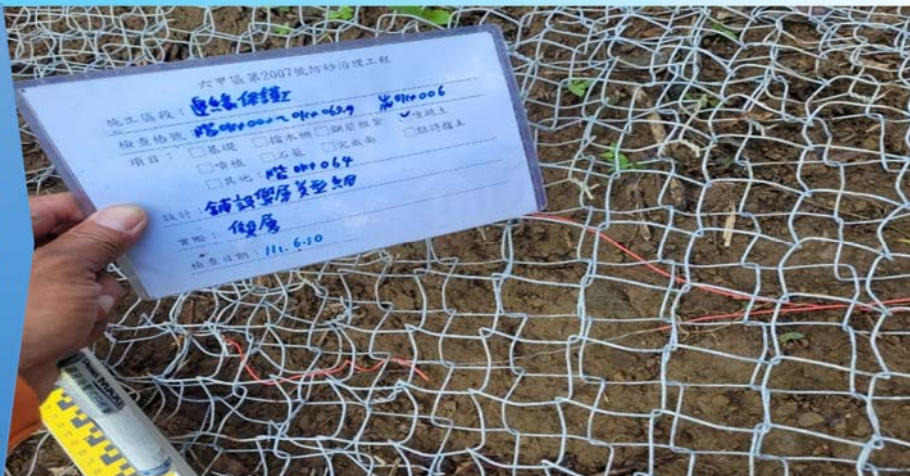 六甲區第2007號防砂治理工程
施工區段：邊緣保護工
檢查樁號：階0k+000~0k+063.9 0k+006
項目：□基礎 □擋木柵 □鋼筋限繫 ✓噴凝土
□噴植 □石籠 □完成面
□其他：階0k+064
設計：舖設雙層菱型網
實際：雙層
檢查日期：111.6.30